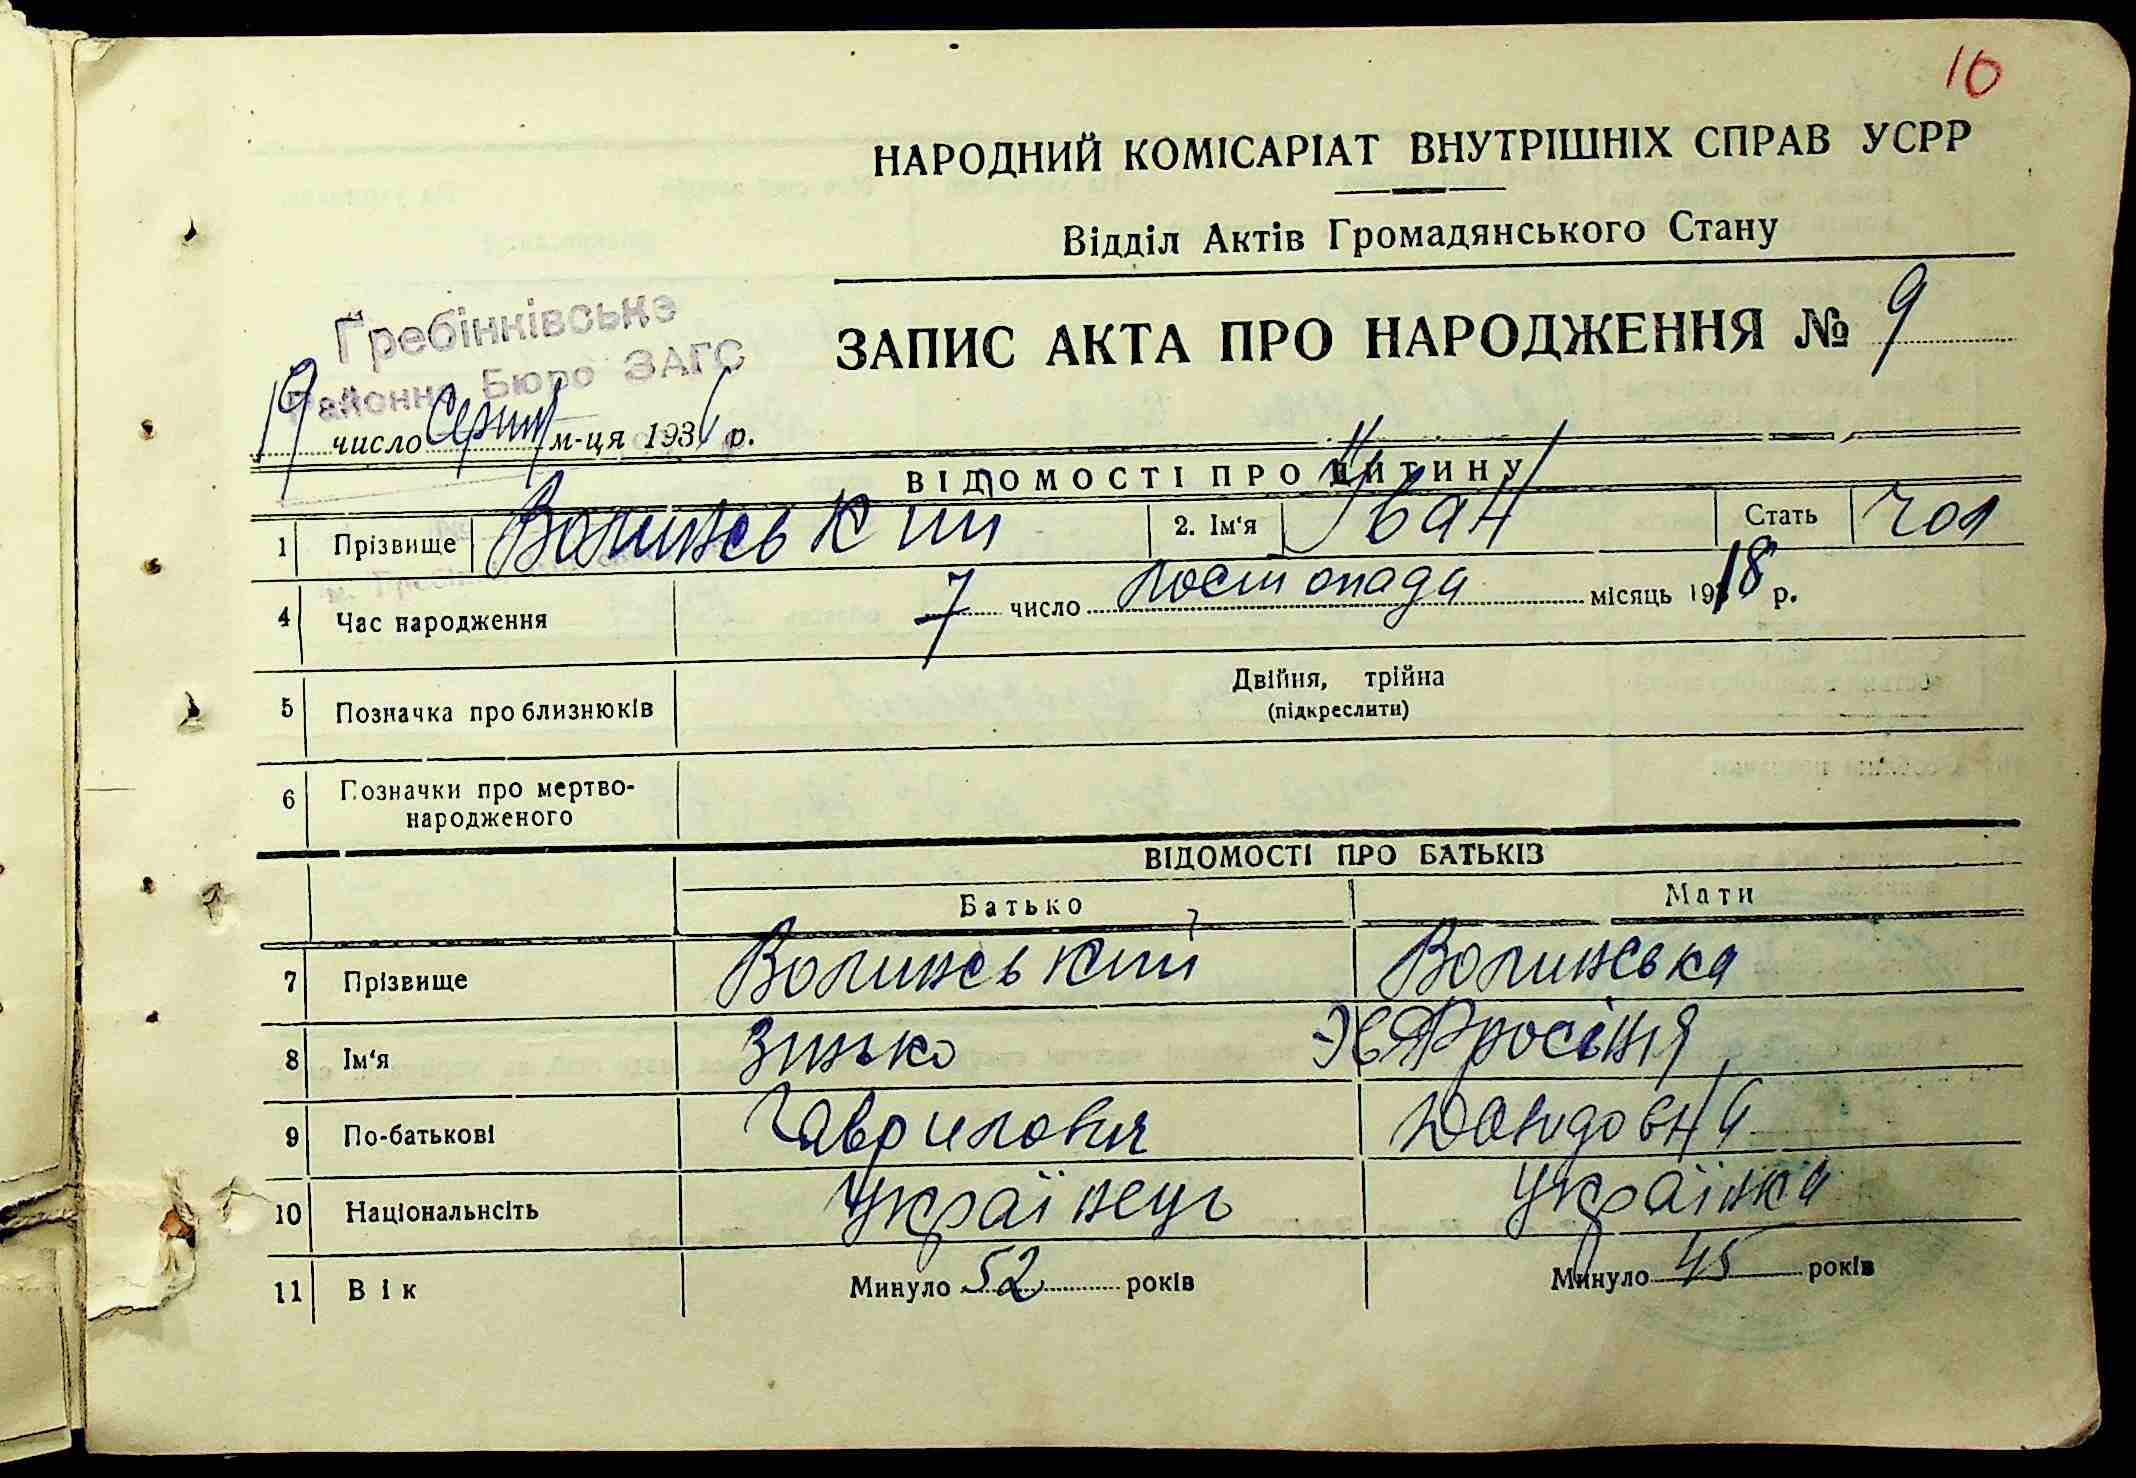 10
НАРОДНИЙ КОМІСАРІАТ ВНУТРІШНІХ СПРАВ УСРР
Відділ Актів Громадянського Стану
Гребінківське
Районне Бюро ЗАГС
ЗАПИС АКТА ПРО НАРОДЖЕННЯ № 9
19 число Серпня м-ця 1936 р.
ВІДОМОСТІ ПРО ДИТИНУ
1 Прізвище Волинський 2. Ім'я Іван Стать чол
4 Час народження 7 число Листопада місяць 1918 р.
5 Позначка про близнюків Двійня, трійна
(підкреслити)
6 Позначки про мертво-
народженого
ВІДОМОСТІ ПРО БАТЬКІВ
Батько Мати
7 Прізвище Волинський Волинська
8 Ім'я Зинько
9 По-батькові Гаврилович Давидовна
10 Національнсіть Українець Українка
11 Вік Минуло 52 років Минуло 45 років